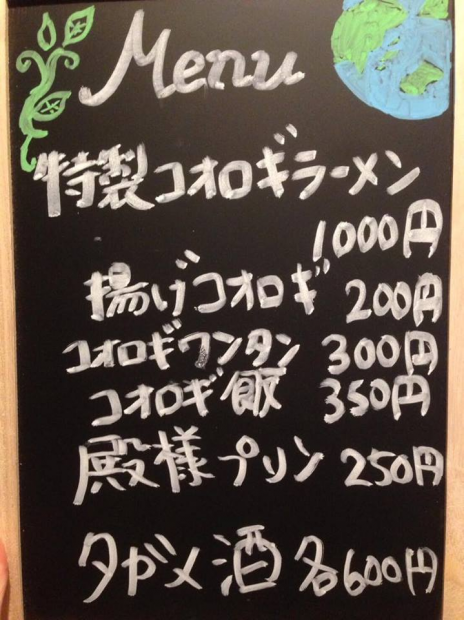 Menu
特製コオロギラーメン
1000円
揚げコオロギ 200円
コオロギワンタン 300円
コオロギ飯 350円
殿様プリン 250円
タガメ酒 各600円